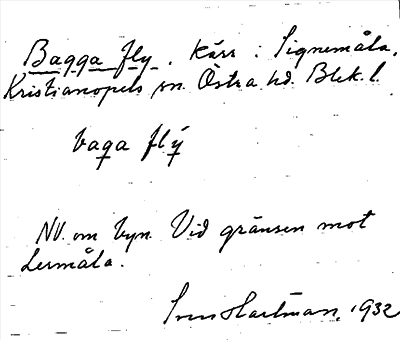 Bagga fly. Kärr : Signemåla,
Kristianopels sn. Östra hd. Blek. l.
baga flý
NV. om byn. Vid gränsen mot
Lermåla.
Sven Hartman, 1932